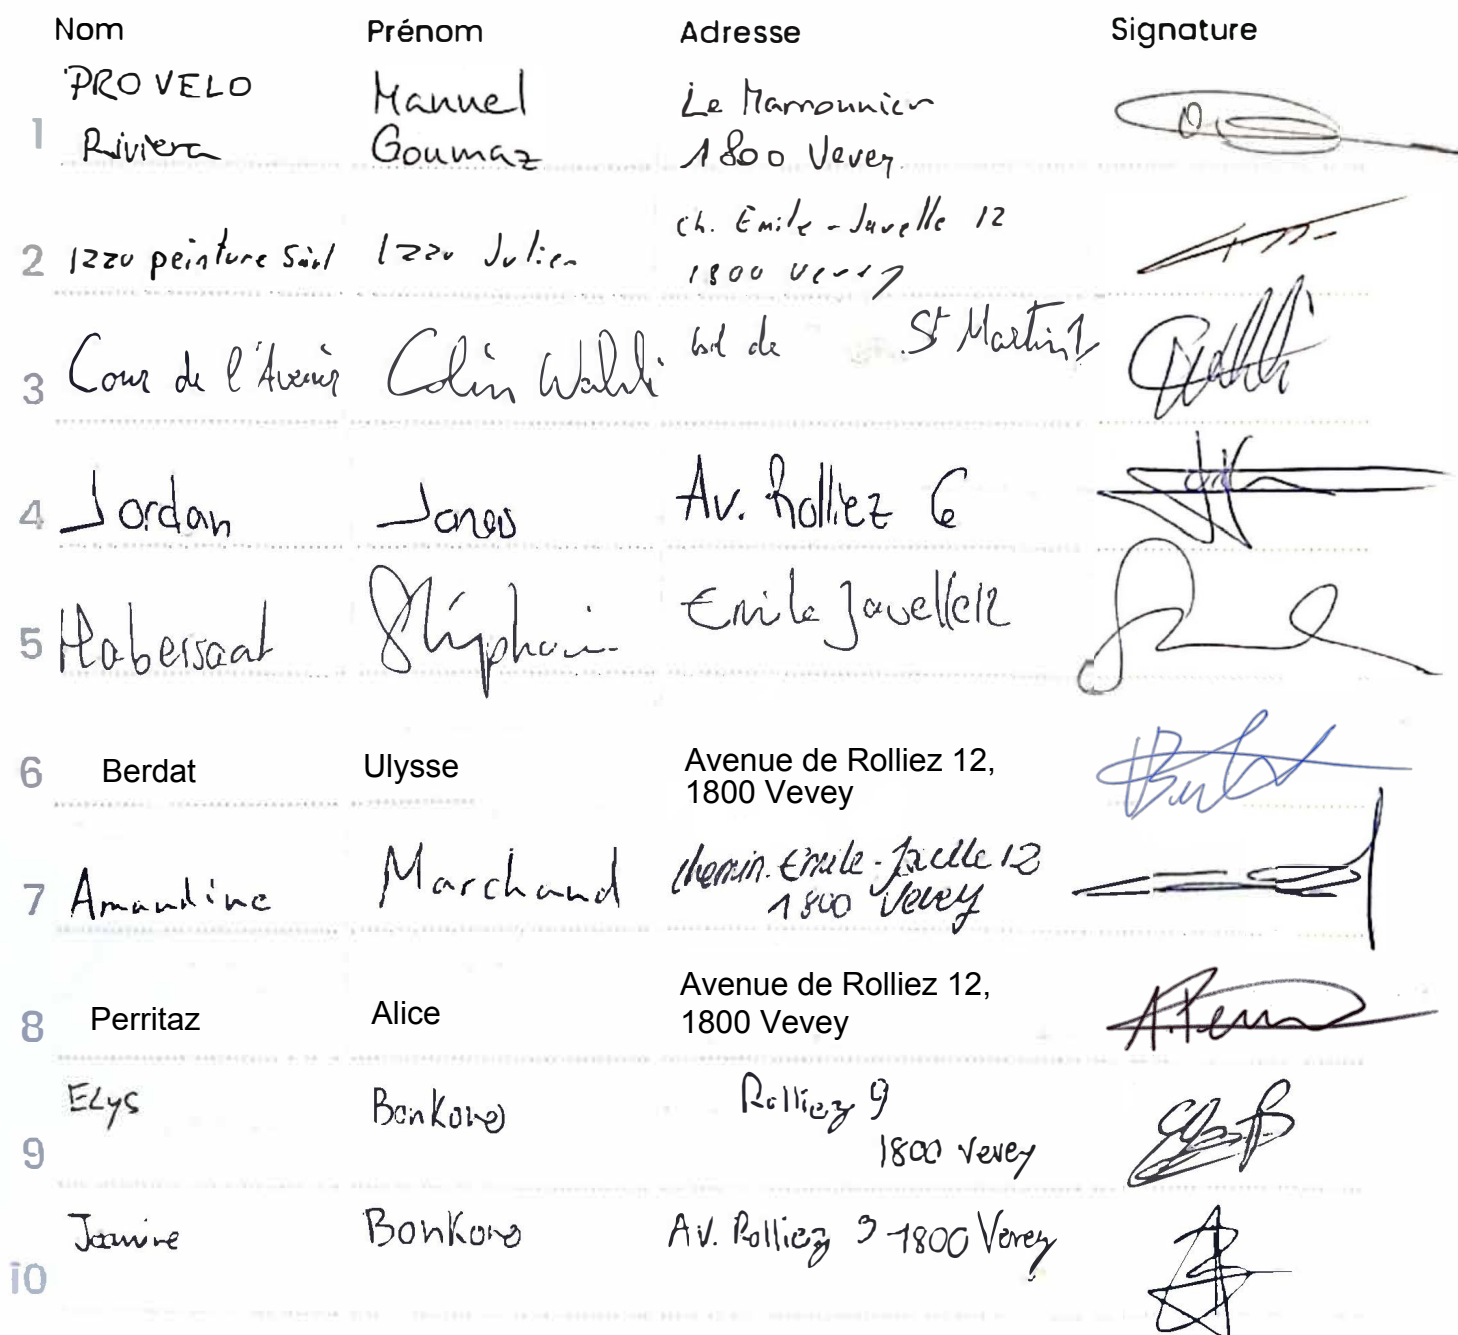 Nom Prénom Adresse Signature
PRO VELO Manuel Le Marronnier
1 Riviera Goumaz 1800 Vevey
ch. Emile-Javelle 12
2 Izzo peinture Sàrl Izzo Julien
1800 Vevey
3 Cour de l'Avenir Colin Wahli bd de St Martin 1
4 Jordan Jones Av. Rolliez 6
5 Habersaat Stéphanie Emile Javelle 12
6 Berdat Ulysse Avenue de Rolliez 12,
1800 Vevey
7 Amandine Marchand chemin. Emile-Javelle 12
1800 Vevey
8 Perritaz Alice Avenue de Rolliez 12,
1800 Vevey
ELys Bonkono Rolliez 9
9 1800 Vevey
Bonkono Av. Rolliez 9 1800 Vevey
10